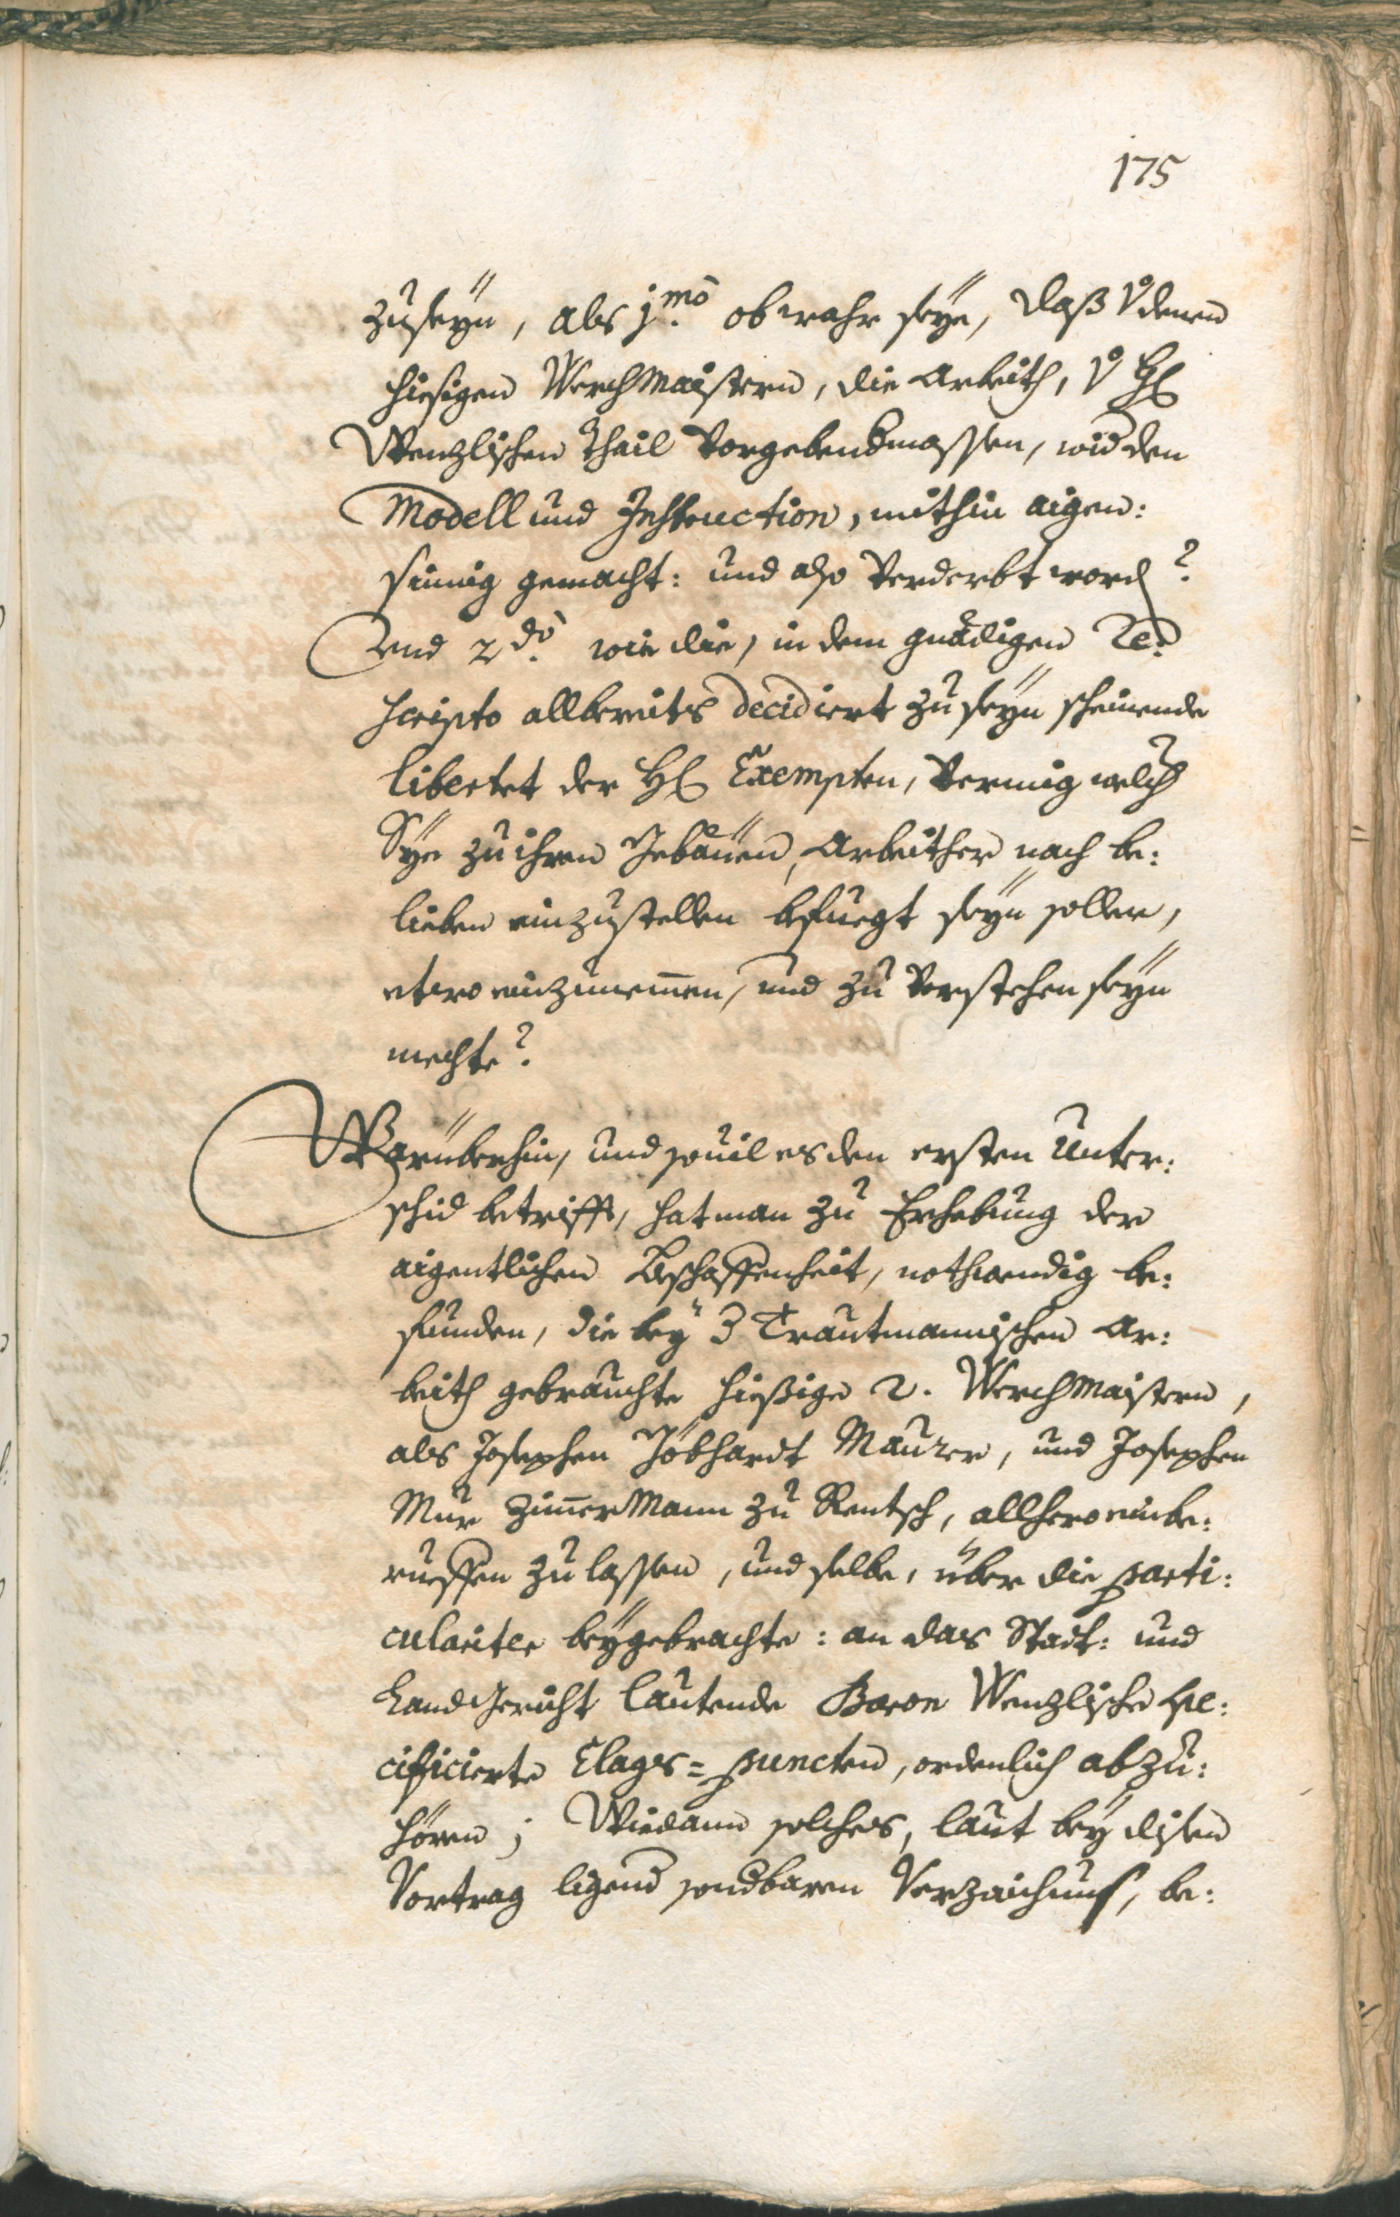 175
zuseÿn, als 1.mo ob wahr seÿe, daß v denen
hiesigen WerchMaistern, die Arbeith, v H
Wenzlischen Thail Vorgebendmassen, wid den
Modell und Instruction, mithin aigen:
sinnig gemacht: und also Verderbt word?
Und 2.do wie die, in dem gnädigen Re:
scripto allbereits decidiert zu seÿn scheinende
libertet der H Exempten, Vermig welch
Sÿe zu ihren Gebäuen, Arbeither nach be:
lieben einzustellen befuegt seÿn sollen,
etwo einzunemmen, und zu Verstehen seÿn
mechte?
Warüberhin, und souil es den ersten Unter:
schid betrifft, hat man zu Erhebung der
aigentlichen Beschaffenheit, nothwendig be:
funden, die beÿ 3 Trautmannischen Ar:
beith gebrauchte hießige 2. WerchMaistern,
als Josephen Jöbhardt Maurer, und Josephen
Mur ZimmerMann zu Rentsch, allhero einbe:
rueffen zu lassen, und selbe, über die parti:
culariter beÿgebrachte: an das Stadt: und
LandGericht lautende Baron Wenzlische spe:
cificierte Clags=puncten, ordenlich abzu:
hören; Wiedann solches, laut beÿ disen
Vortrag ligend sondbaren Verzaichnus, be: